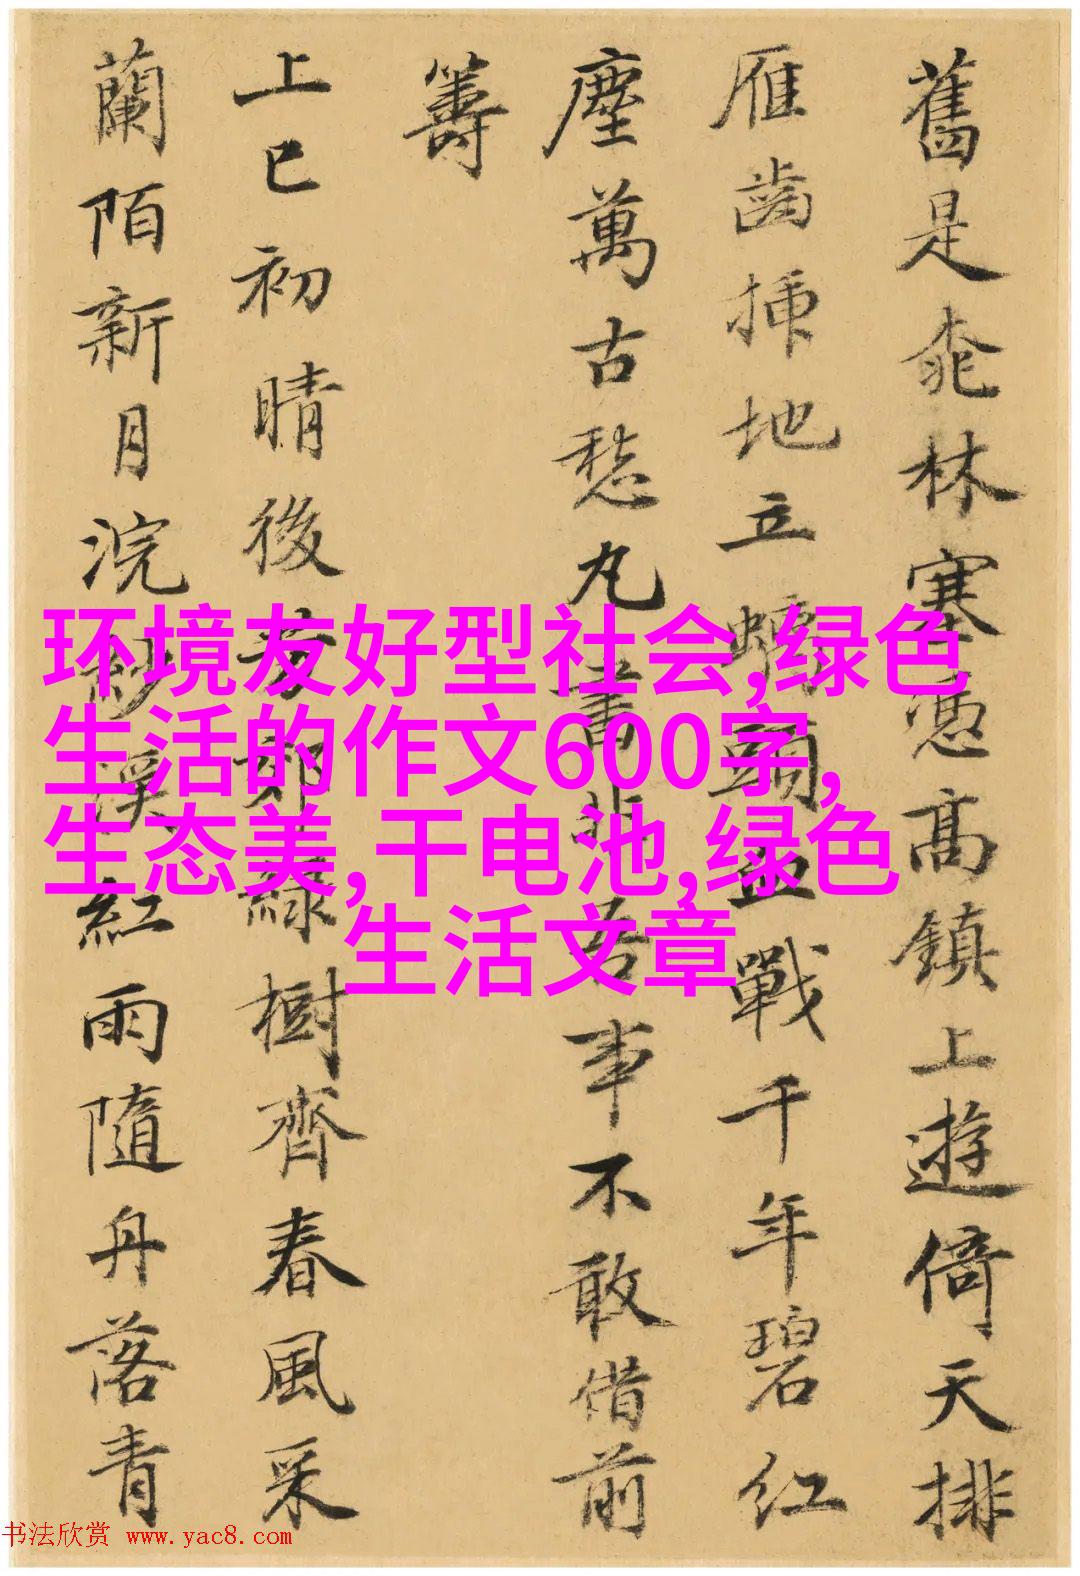 舊是桃林塞憑高鎮上遊倚天排
雁齒插地立螭頭血戰千年碧紅
塵萬古愁丸書非吾事不敢借前
籌
上巳初晴後芳郊綠樹齊春風采
蘭陌新月浣紗溪紅雨隨舟落青
环境友好型社会,绿色
生活的作文600字,
生态美,干电池,绿色
生活文章
书法欣赏 www.yac8.com